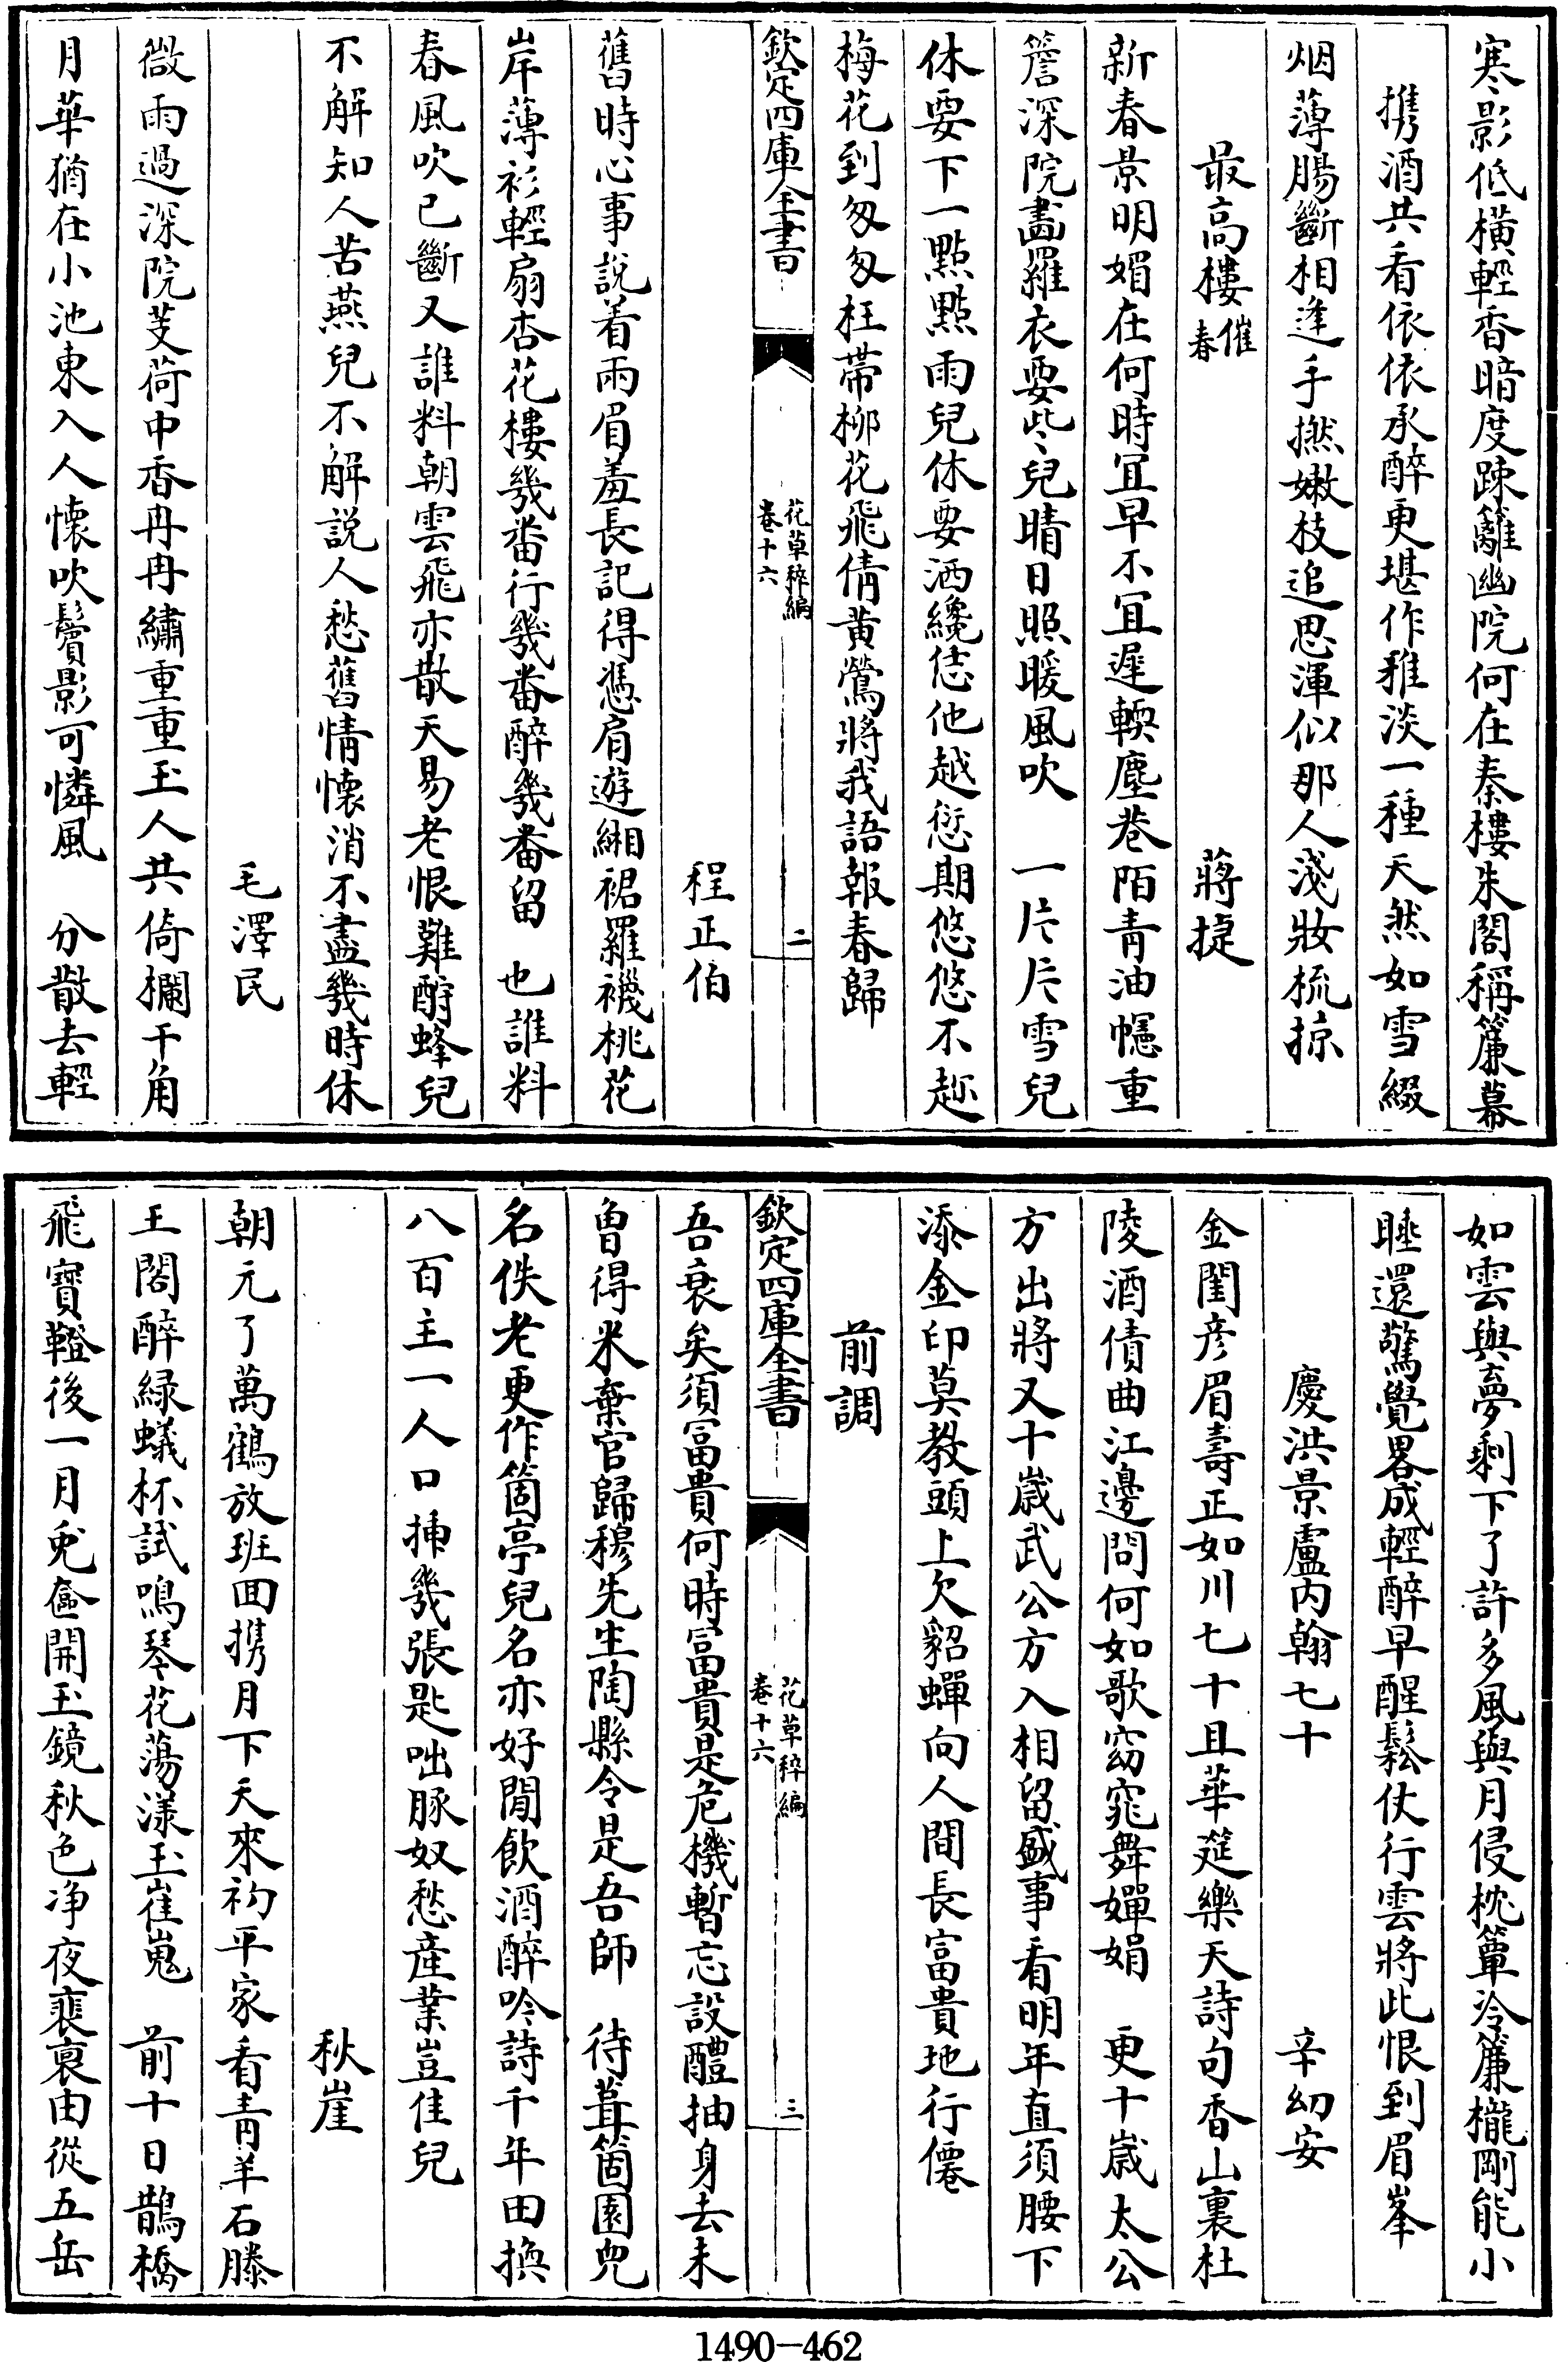 寒影低横輕香暗度踈籬幽院何在秦樓朱閣稱簾幕
携酒共看依依承醉更堪作雅淡一種天然如雪綴
烟薄腸斷相逢手撚嫩枝追思渾似那人淺妝梳掠
最高樓催春 蔣捷
新春景明媚在何時宜早不宜遲輭塵巷陌青油幰重
簷深院畵羅衣要些兒晴日照暖風吹 一片片雪兒
休要下一點點雨兒休要洒纔恁他越愆期悠悠不趂
梅花到匆匆枉帶柳花飛倩黄鶯將我語報春歸
欽定四庫全書 花草稡編 卷十六 二
程正伯
舊時心事說着兩眉羞長記得憑肩遊緗裙羅襪桃花
岸薄衫輕扇杏花樓幾畨行幾畨醉幾畨留 也誰料
春風吹已斷又誰料朝雲飛亦散天易老恨難酬蜂兒
不解知人苦燕兒不解説人愁舊情懷消不盡幾時休
毛澤民
微雨過深院芰荷中香冉冉繡重重玉人共倚欄干角
月華猶在小池東入人懷吹鬢影可憐風 分散去輕
如雲與夢剩下了許多風與月侵枕簟冷簾櫳剛能小
睡還驚覺畧成輕醉早醒鬆仗行雲將此恨到眉峯
慶洪景盧内翰七十 辛幼安
金閨彦眉壽正如川七十且華筵樂天詩句香山裏杜
陵酒債曲江邊問何如歌窈窕舞嬋娟 更十歳太公
方出將又十歳武公方入相留盛事看明年直須腰下
添金印莫教頭上欠貂蟬向人間長富貴地行僊
前調
欽定四庫全書 花草稡編 卷十六 三
吾衰矣須富貴何時富貴是危機暫忘設醴抽身去未
曽得米棄官歸穆先生陶縣令是吾師 待葺箇園兜
名佚老更作箇亭兒名亦好閒飲酒醉吟詩千年田換
八百主一人口揷幾張匙咄豚奴愁産業豈佳兒
秋崖
朝元了萬鶴放班囬携月下天來礿平家看青羊石滕
王閣醉緑蟻杯試鳴琴花蕩漾玉崔嵬 前十日鵲橋
飛寶鞾後一月兎奩開玉鏡秋色净夜裴裒由從五岳